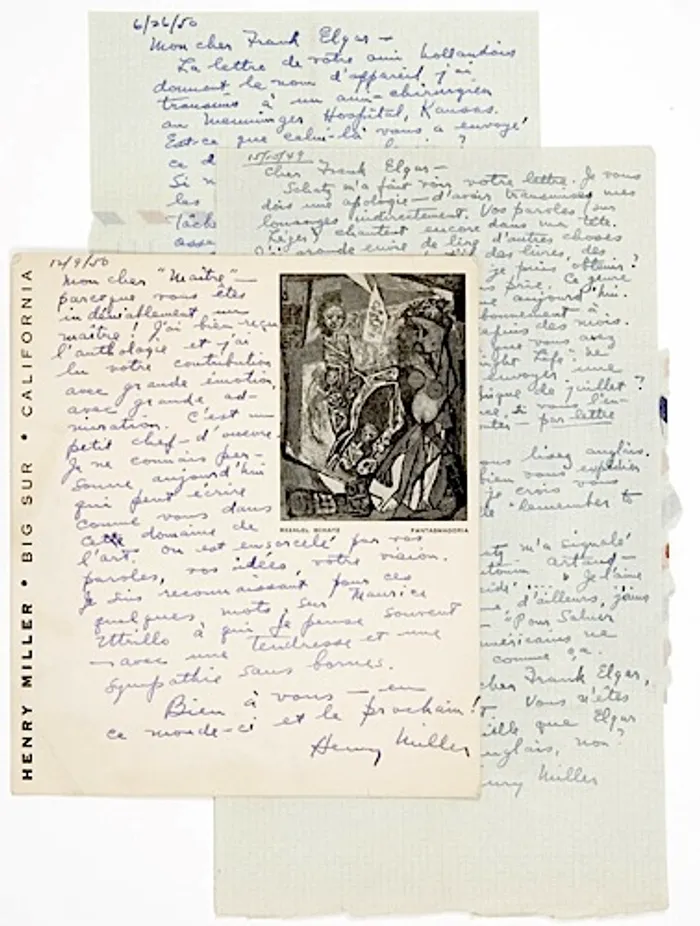 6/26/50
Mon cher Frank Elgar —
La lettre de votre ami hollandais
donnant le nom d'appareil j'ai
transmis à un ami-chirurgien
au Menninger Hospital, Kansas.
Est-ce que celui-là vous a envoyé
ce d
Si n
les
Tâch
asse
15/10/49
Cher Frank Elgar—
Schatz m'a fait voir votre lettre. Je vous
dois une apologie—d'avoir transmises mes
louanges indirectement. Vos paroles sur
Léger chantent encore dans ma tête.
grande envie de lire d'autres choses
des livres, des
je puis obtenir?
prix. Ce genre
aujourd'hui.
abonnement à
depuis des mois.
que vous avez
ight Life" de
envoyer une
sique de juillet?
ce, si vous l'en-
tes— par lettre
ous lisez anglais.
bien vous expédier
je crois vous
"Remember to
atz m'a signalé
Antonin Artaud—
cidé'.... Je l'aime
d'ailleurs, j'aime
"Pour Saluer
méricains ne
comme ça.
cher Frank Elgar,
Vous n'êtes
ille que Elgar
nglais, non?
enry Miller
12/9/50
Mon cher "Maître"—
parceque vous êtes
indéniablement un
maître! J'ai bien reçu
l'anthologie et j'ai
lu votre contribution
avec grande émotion,
avec grande ad-
miration. C'est un
petit chef-d'oeuvre.
Je ne connais per-
sonne aujourd'hui
qui peut écrire
comme vous dans
cette domaine de
l'art. On est ensorcelé par vos
paroles, vos idées, votre vision.
Je suis reconnaissant pour ces
quelques mots sur Maurice
Utrillo à qui je pense souvent
—avec une tendresse et une
sympathie sans bornes.
Bien à vous — en
ce monde-ci et le prochain!
Henry Miller
BEZALEL SCHATZ
FANTASMAGORIA
HENRY MILLER • BIG SUR • CALIFORNIA